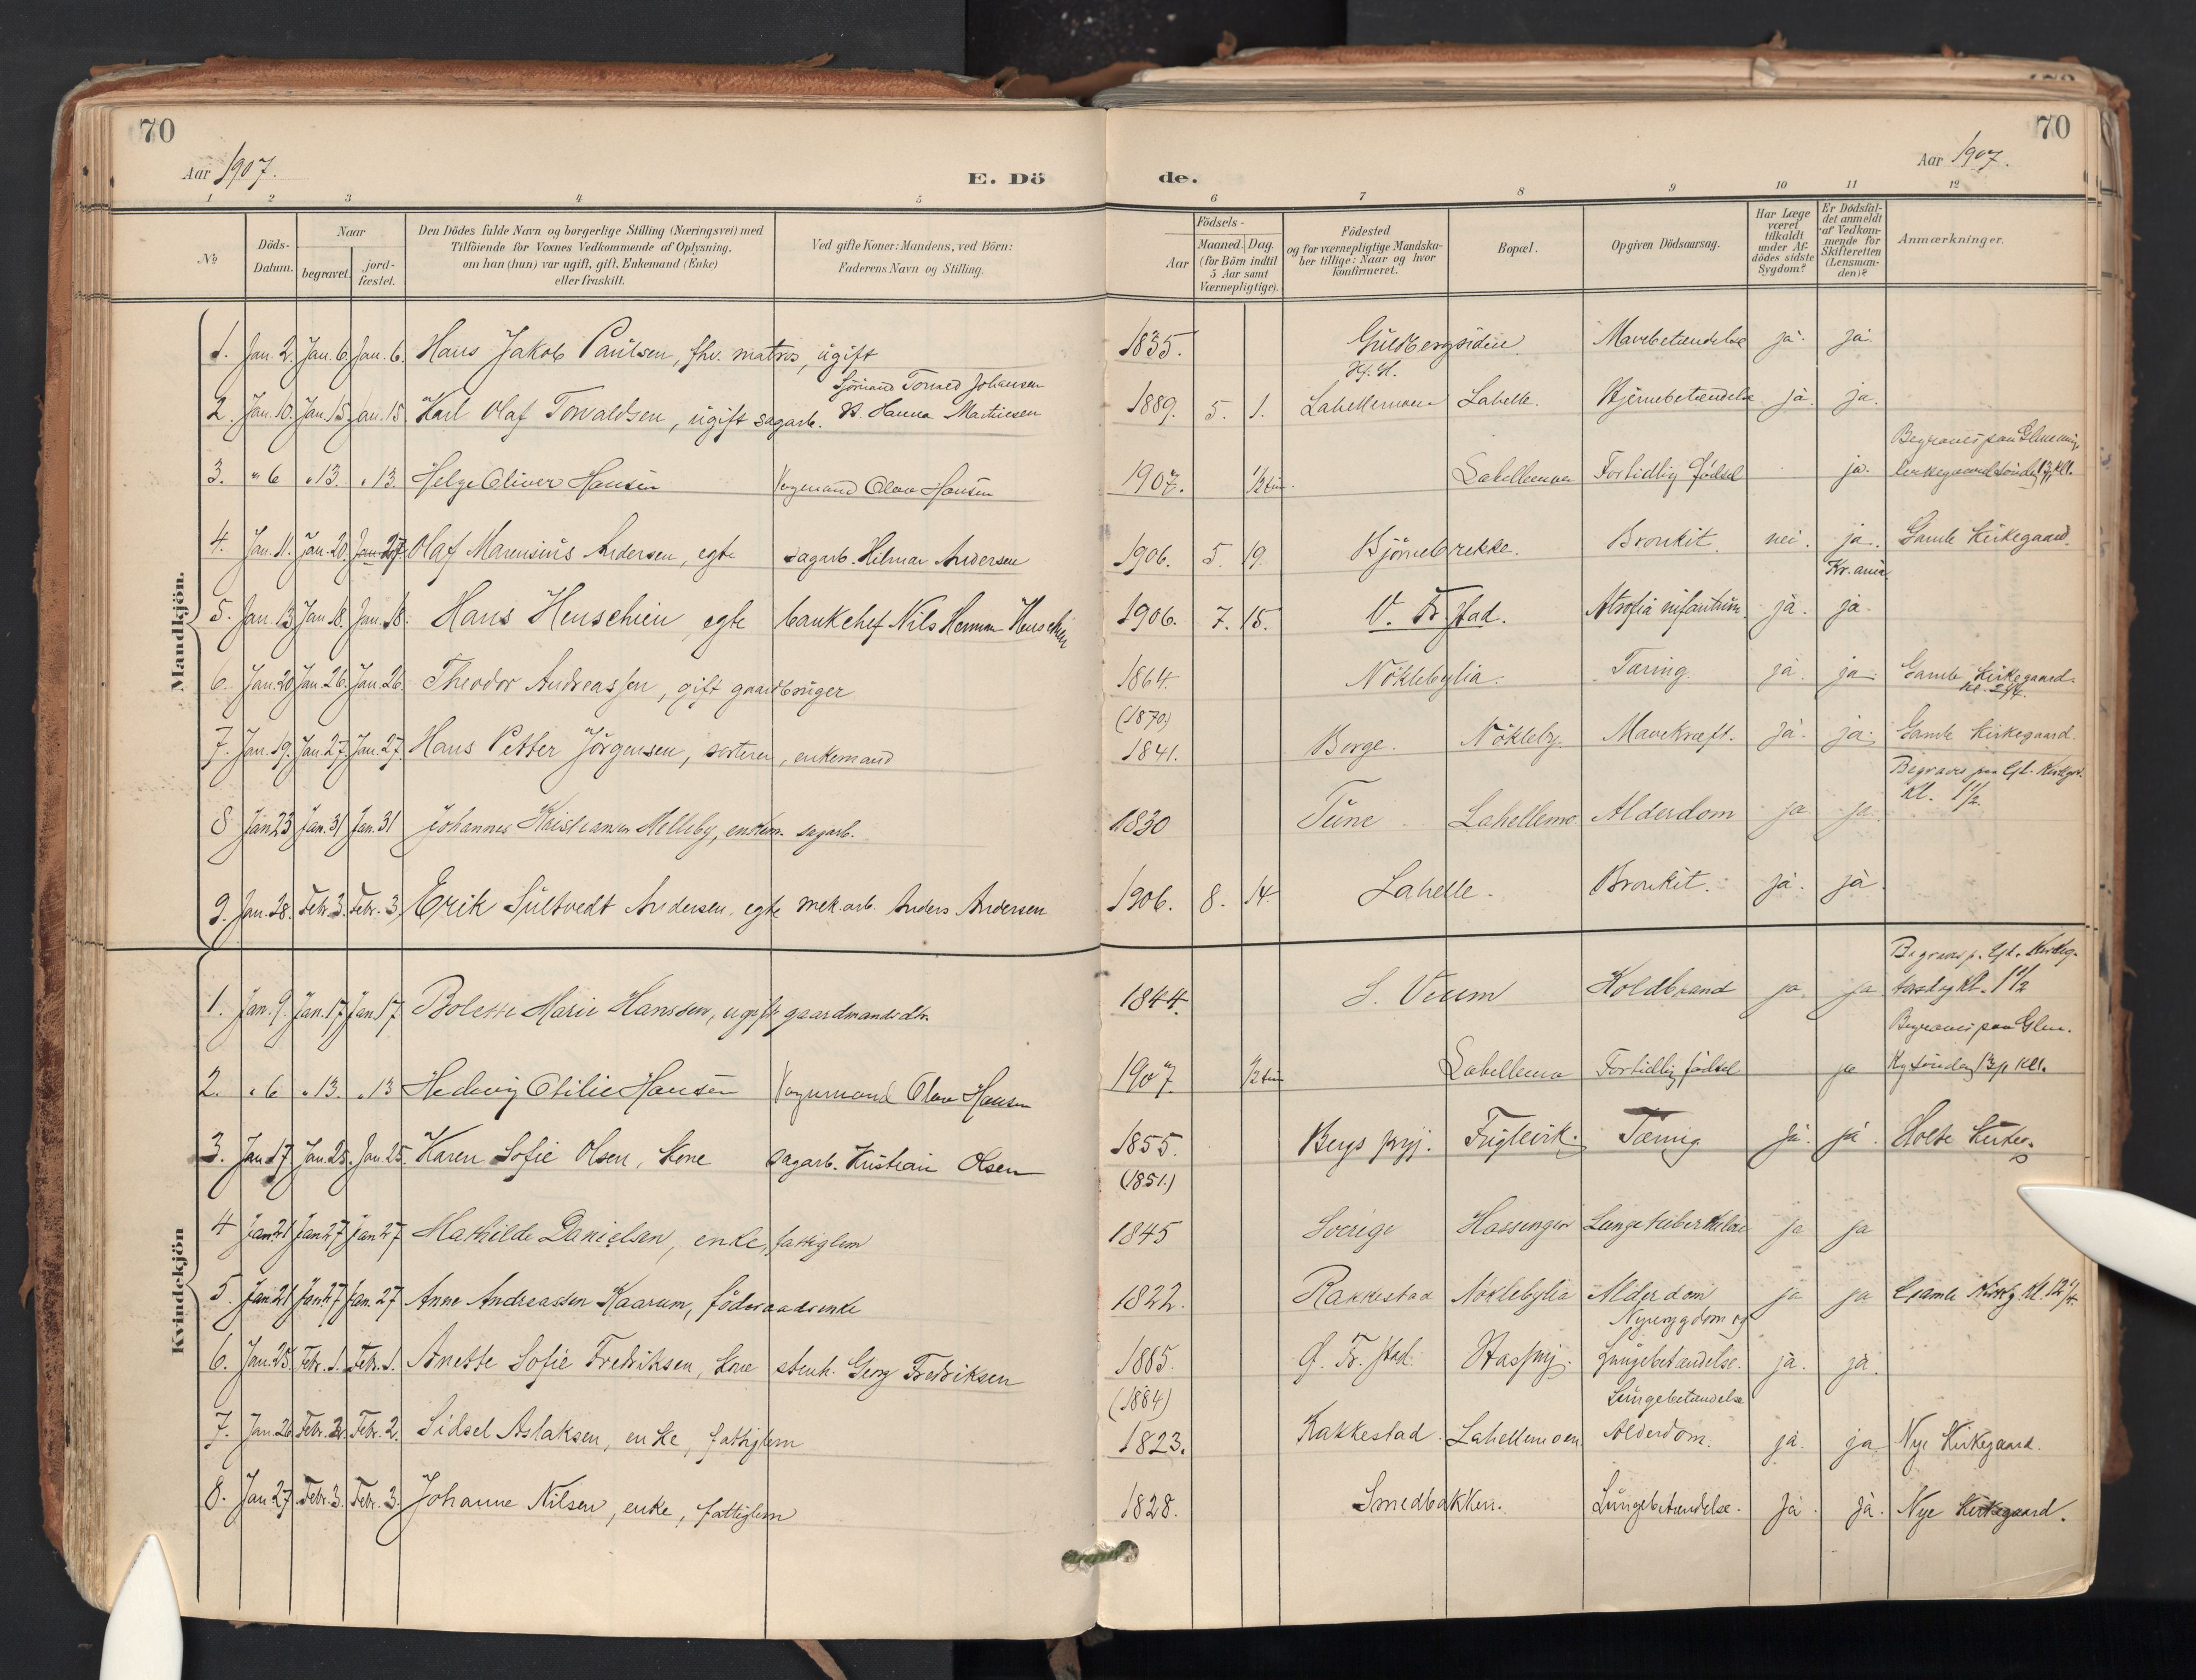 70
70
Aar 1907.
E. Dö
de.
Aar 1907.
1 2 3 4 5 6 7 8 9 10 11 12
No
Döds-
Datum.
Naar
begravet.
jord-
fæstet.
Den Dödes fulde Navn og borgerlige Stilling (Næringsvei) med
Tilföiende for Voxnes Vedkommende af Oplysning,
om han (hun) var ugift, gift, Enkemand (Enke)
eller fraskilt.
Ved gifte Koner: Mandens, ved Börn:
Faderens Navn og Stilling.
Födsels-
Aar
Maaned. Dag.
(for Börn indtil
5 Aar samt
Værnepligtige).
Födested
og for værnepligtige Mandska-
ber tillige: Naar og hvor
konfirmeret.
Bopæl.
Opgiven Dödsaarsag.
Har Læge
været
tilkaldt
under Af-
dödes sidste
Sygdom?
Er Dödsfal-
det anmeldt
af Vedkom-
mende for
Skifteretten
(Lensman-
den)?
Anmærkninger.
Mandkjön.
1. Jan. 2. Jan. 6. Jan. 6. Hans Jakob Paulsen, fhv. matros, ugift 1835. Guldbergsiden Mavebetændelse ja. ja.
Sjömand Torvald Johansen
2. Jan. 10. Jan. 15. Jan. 15. Karl Olaf Torvaldsen, ugift sagarb. H. Hanna Mathiesen 1889. 5. 1. Labellemoen Labelle. Hjernebetændelse ja. ja.
Begraves paa Glemminge
3. " 6 " 13. " 13. Helge Oliver Hansen Vognmand Olav Hansen 1907. 1/2 tim. Labellemoen Fortidlig födsel ja.
4. Jan. 11. Jan. 20. Jan. 27 Olaf Marensius Andersen, egte sagarb. Hilmar Andersen 1906. 5. 19. Bjørnebrekke. Bronkit. nei. ja. Gamle Kirkegaard.
5. Jan. 13 Jan. 18. Jan. 18. Hans Henschien, egte bankchef Nils Herman Henschien 1906. 7. 15. V. Fr.stad. Atrofia infantum. ja. ja.
6. Jan. 20. Jan. 26. Jan. 26. Theodor Andreassen, gift gaardbruger 1864. Nöklebylia. Tæring. ja. ja. Gamle Kirkegaard.
(1870)
7. Jan. 19. Jan. 27. Jan. 27. Hans Petter Jörgensen, sorterer, enkemand 1841. Borge. Nökleby. Mavekræft. ja. ja. Gamle Kirkegaard.
Begraves paa Gl. Kirkgrd.
Kl. 1 1/2.
8 Jan 23 Jan. 31 Jan. 31 Johannes Kristiansen Melleby, enkem. sagarb. 1830 Tune Labellemo Alderdom ja ja
9. Jan. 28. Febr. 3. Febr. 3. Erik Sultvedt Andersen, egte mek.arb. Anders Andersen 1906. 8. 14. Labelle. Bronkit. ja. ja
Kvindekjön
Begraves p. Gl. Kirkeg.
1. Jan. 9. Jan. 17 Jan. 17 Bolette Marie Hanssen, ugift gaardmandsdtr. 1844. S. Veum Koldbrand ja. ja torsdag Kl. 1 1/2
Begraves paa Glem.
2. " 6 " 13. " 13 Hedevig Otilie Hansen Vognmand Olav Hansen 1907. 1/2 tim Labellemo Fortidlig födsel ja Kg söndag 13/1 Kl 1.
3. Jan 17 Jan. 25. Jan. 25. Karen Sofie Olsen, kone sagarb. Kristian Olsen 1855. Bergs prgj. Fuglevik. Tæring ja. ja.
(1851.)
4 Jan 21 Jan 27 Jan 27 Mathilde Danielsen, enke, fattiglem 1845 Sverige Hassingen Lungetuberkulose ja ja
5. Jan 21 Jan 27 Jan. 27 Anne Andreassen Kaarum, föderaadsenke 1822. Rakkestad Nöklebylia Alderdom ja ja Gamle Kirkg. Kl. 12 1/4.
Nyresygdom og
6. Jan. 25. Febr. 1. Febr. 1. Anette Sofie Fredriksen, kone stenh. Georg Fredriksen 1885. G. Fr.stad. Lungebetændelse. ja. ja.
(1884)
Lungebetændelse
7. Jan. 26 Febr. 2. Febr. 2. Sidsel Aslaksen, enke, fattiglem 1823. Rakkestad. Labellemoen Alderdom. ja. ja Nye Kirkegaard.
8. Jan 27 Febr. 3. Febr. 3. Johanne Nilsen, enke, fattiglem 1828. Smedbakken. Lungebetændelse. ja. ja. Nye Kirkegaard.